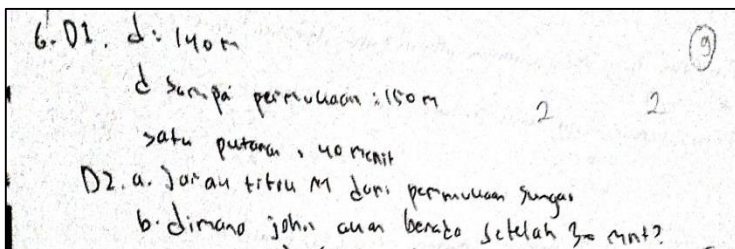 6. D1. d: 140 m 9
d sampai permukaan : 150 m 2 2
satu putaran , 40 menit
D2. a. Jarak titik M dari permukaan sungai
b. dimana john akan berada setelah 30 mnt?